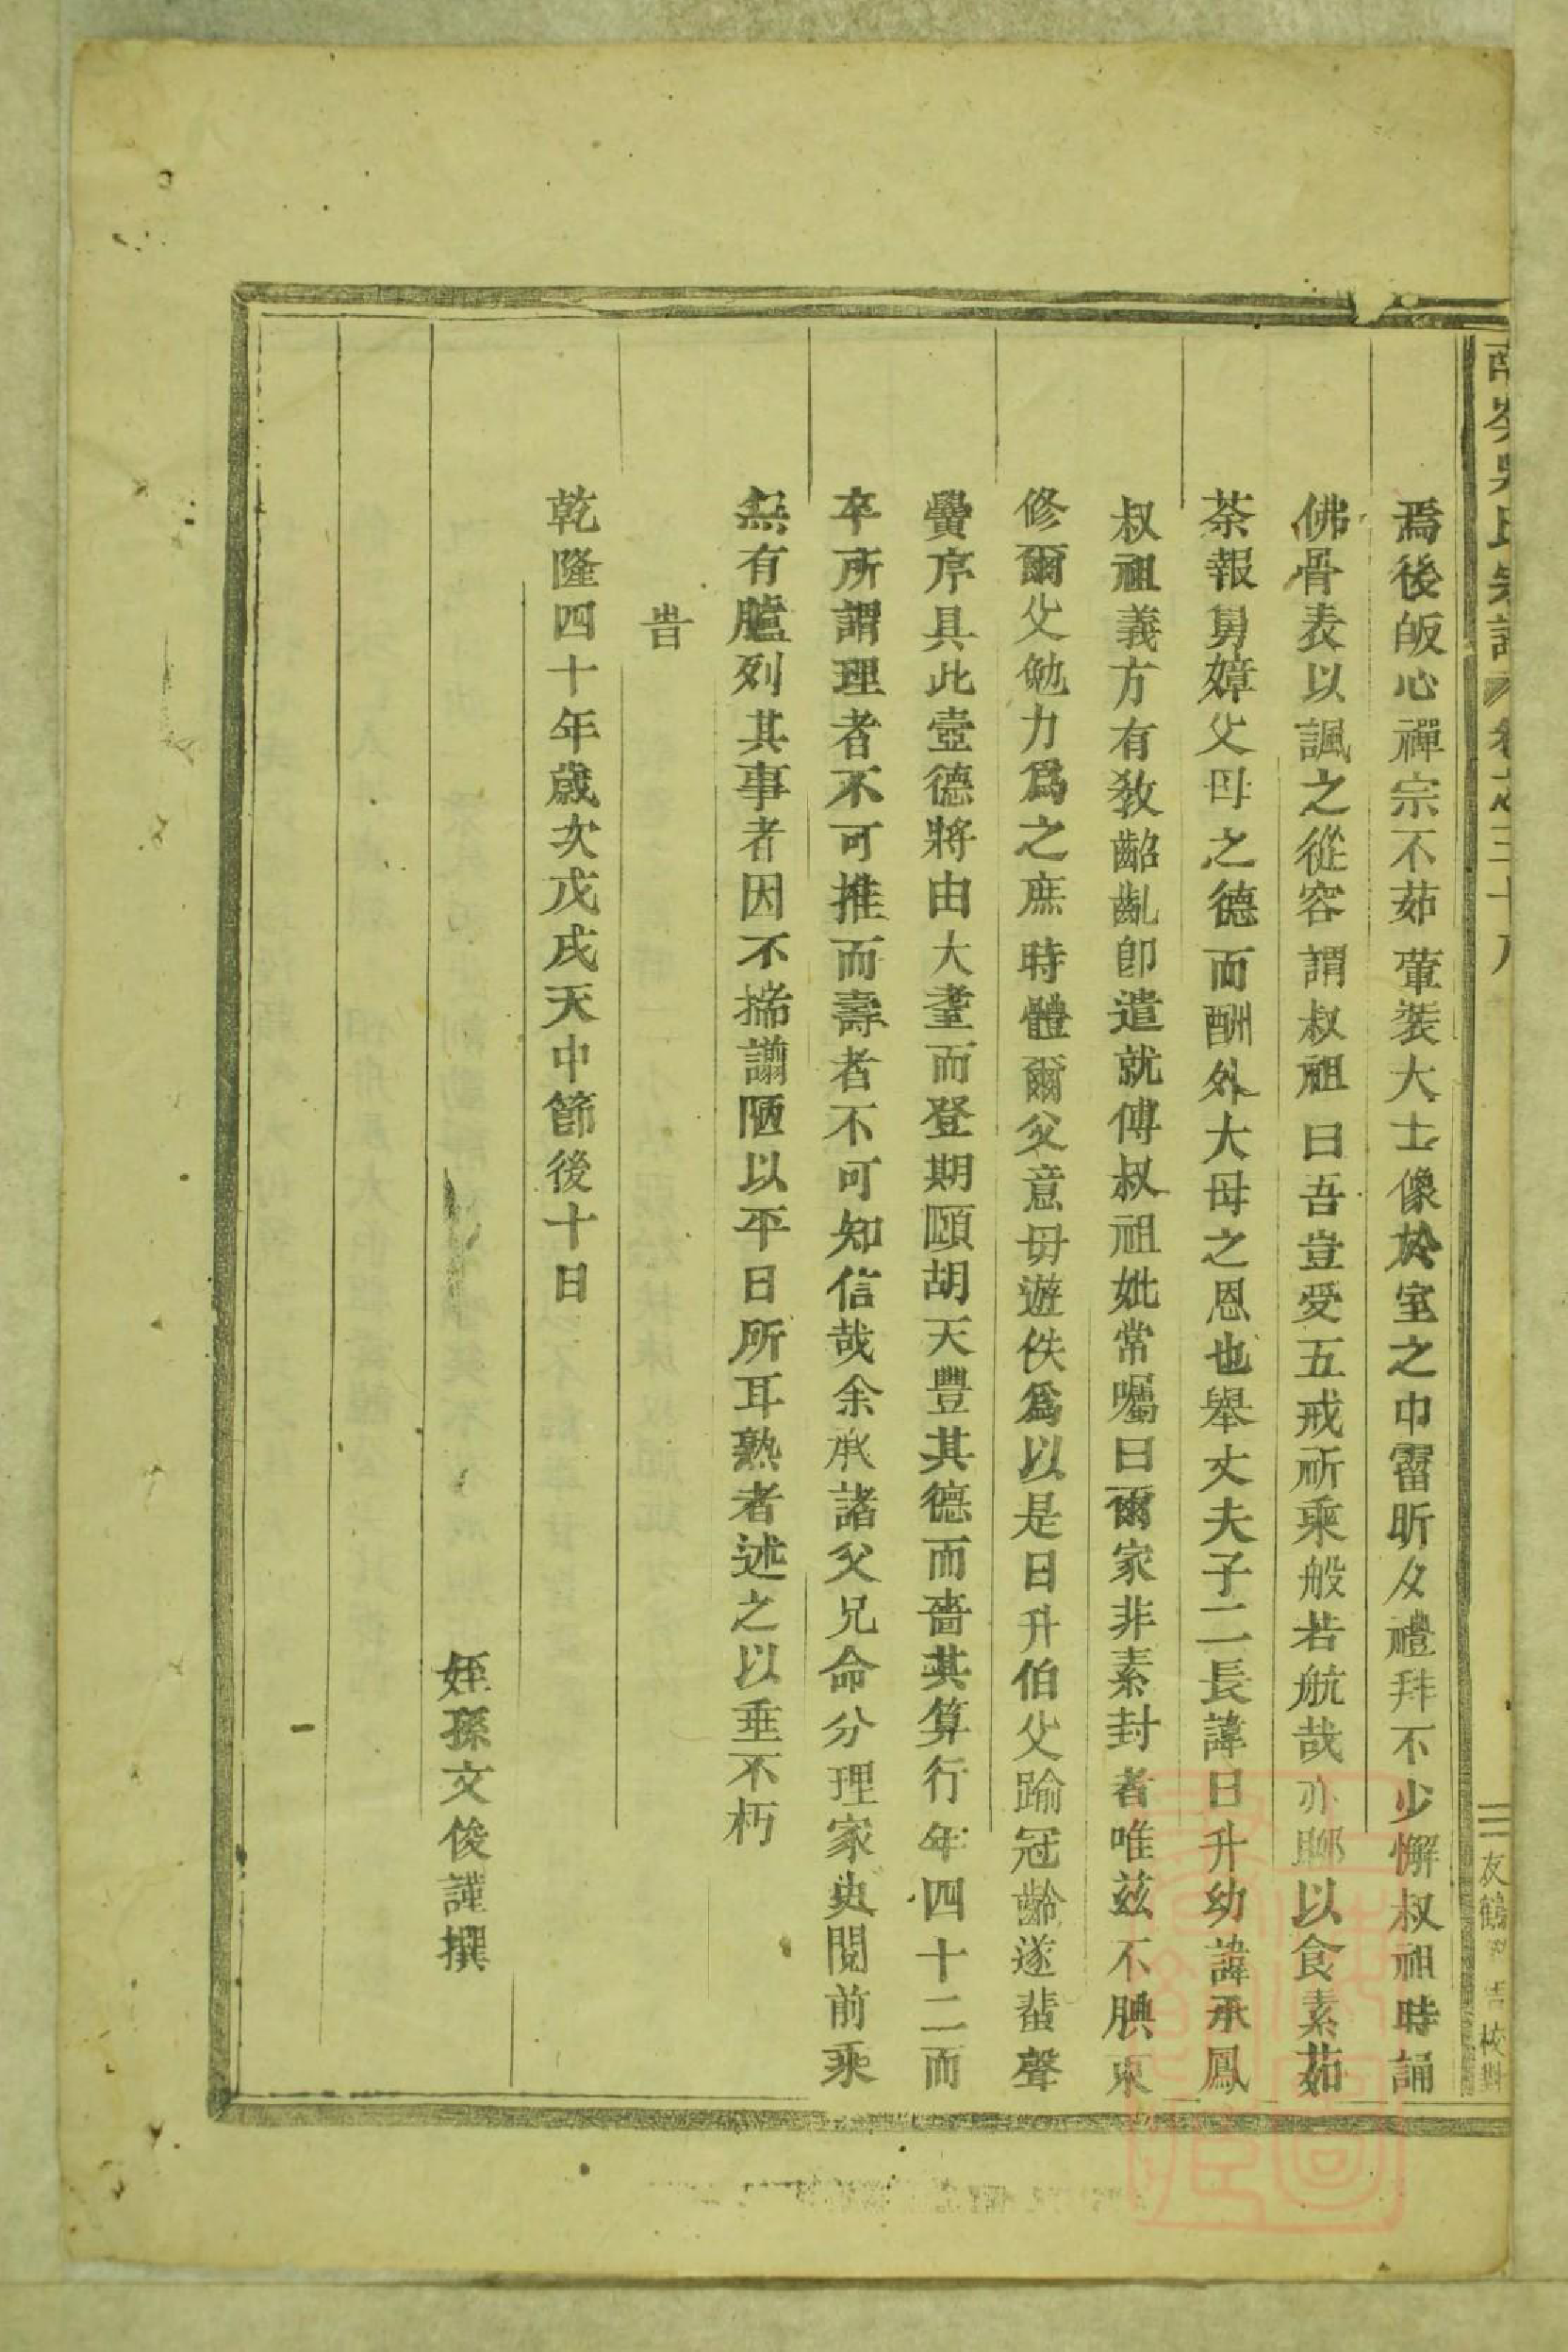 吳氏宗譜 卷之三十八
三 友鶴 校對
焉後皈心禪宗不茹葷裝大士像於室之巾霤昕夕禮拜不少懈叔祖時誦
佛骨表以諷之從容謂叔祖曰吾豈受五戒祈乘般若航哉亦聊以食素茹
荼報舅嫜父母之德而酬外大母之恩也舉丈夫子二長諱日升幼諱承鳳
叔祖義方有敎齠齓卽遣就傅叔祖妣常囑曰爾家非素封者唯茲不腆束
修爾父勉力爲之庶時體爾父意毋遊佚爲以是日升伯父踰冠齡遂蜚聲
黌序具此壼德將由大耋而登期頤胡天豐其德而嗇其算行年四十二而
卒所謂理者不可推而壽者不可知信哉余承諸父兄命分理家史閱前乘
無有臚列其事者因不揣譾陋以平日所耳熟者述之以垂不朽
旹
乾隆四十年歲次戊戌天中節後十日
姪孫文俊謹撰